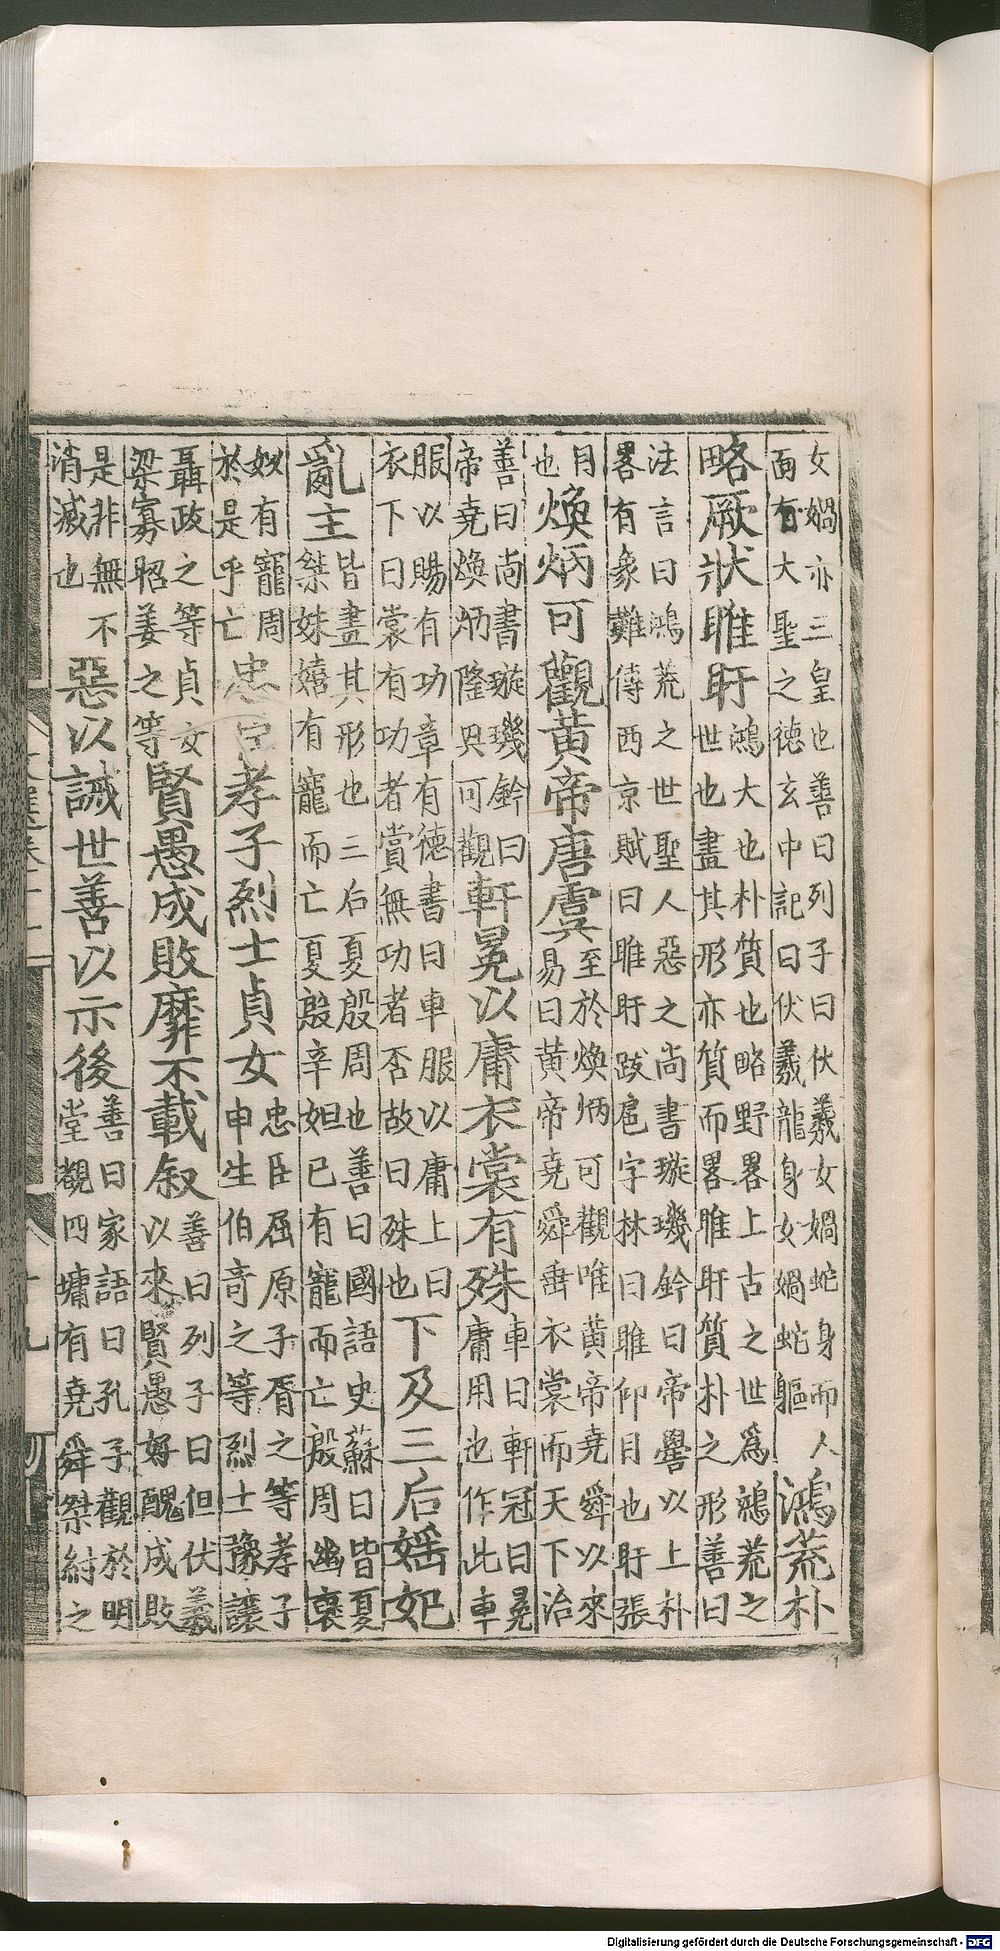 女媧亦三皇也善曰列子曰伏羲女媧蛇身而人
面有大聖之德玄中記曰伏羲龍身女媧蛇軀鴻荒朴
略厥狀睢盱鴻大也朴質也略野畧上古之世爲鴻荒之
世也盡其形亦質而畧睢盱質朴之形善曰
法言曰鴻荒之世聖人惡之尚書璇璣鈐曰帝嚳以上朴
畧有象難傳西京賦曰睢盱跋扈字林曰睢仰目也盱張
目
也煥炳可觀黃帝唐虞至於煥炳可觀唯黃帝堯舜以來
易曰黃帝堯舜垂衣裳而天下治
善曰尚書璇璣鈐曰
帝堯煥炳隆興可觀軒冕以庸衣裳有殊車曰軒冠曰冕
庸用也作此車
服以賜有功章有德書曰車服以庸上曰
衣下曰裳有功者賞無功者否故曰殊也下及三后婬妃
亂主皆盡其形也三后夏殷周也善曰國語史蘇曰皆夏
桀妹嬉有寵而亡夏殷辛妲已有寵而亡殷周幽褒
姒有寵周
於是乎亡忠臣孝子烈士貞女忠臣屈原子胥之等孝子
申生伯奇之等烈士豫讓
聶政之等貞女
梁寡昭姜之等賢愚成敗靡不載叙善曰列子曰但伏羲
以來賢愚好醜成敗
是非無不
消滅也惡以誡世善以示後善曰家語曰孔子觀於明
堂觀四墉有堯舜桀紂之
Digitalisierung gefördert durch die Deutsche Forschungsgemeinschaft - DFG